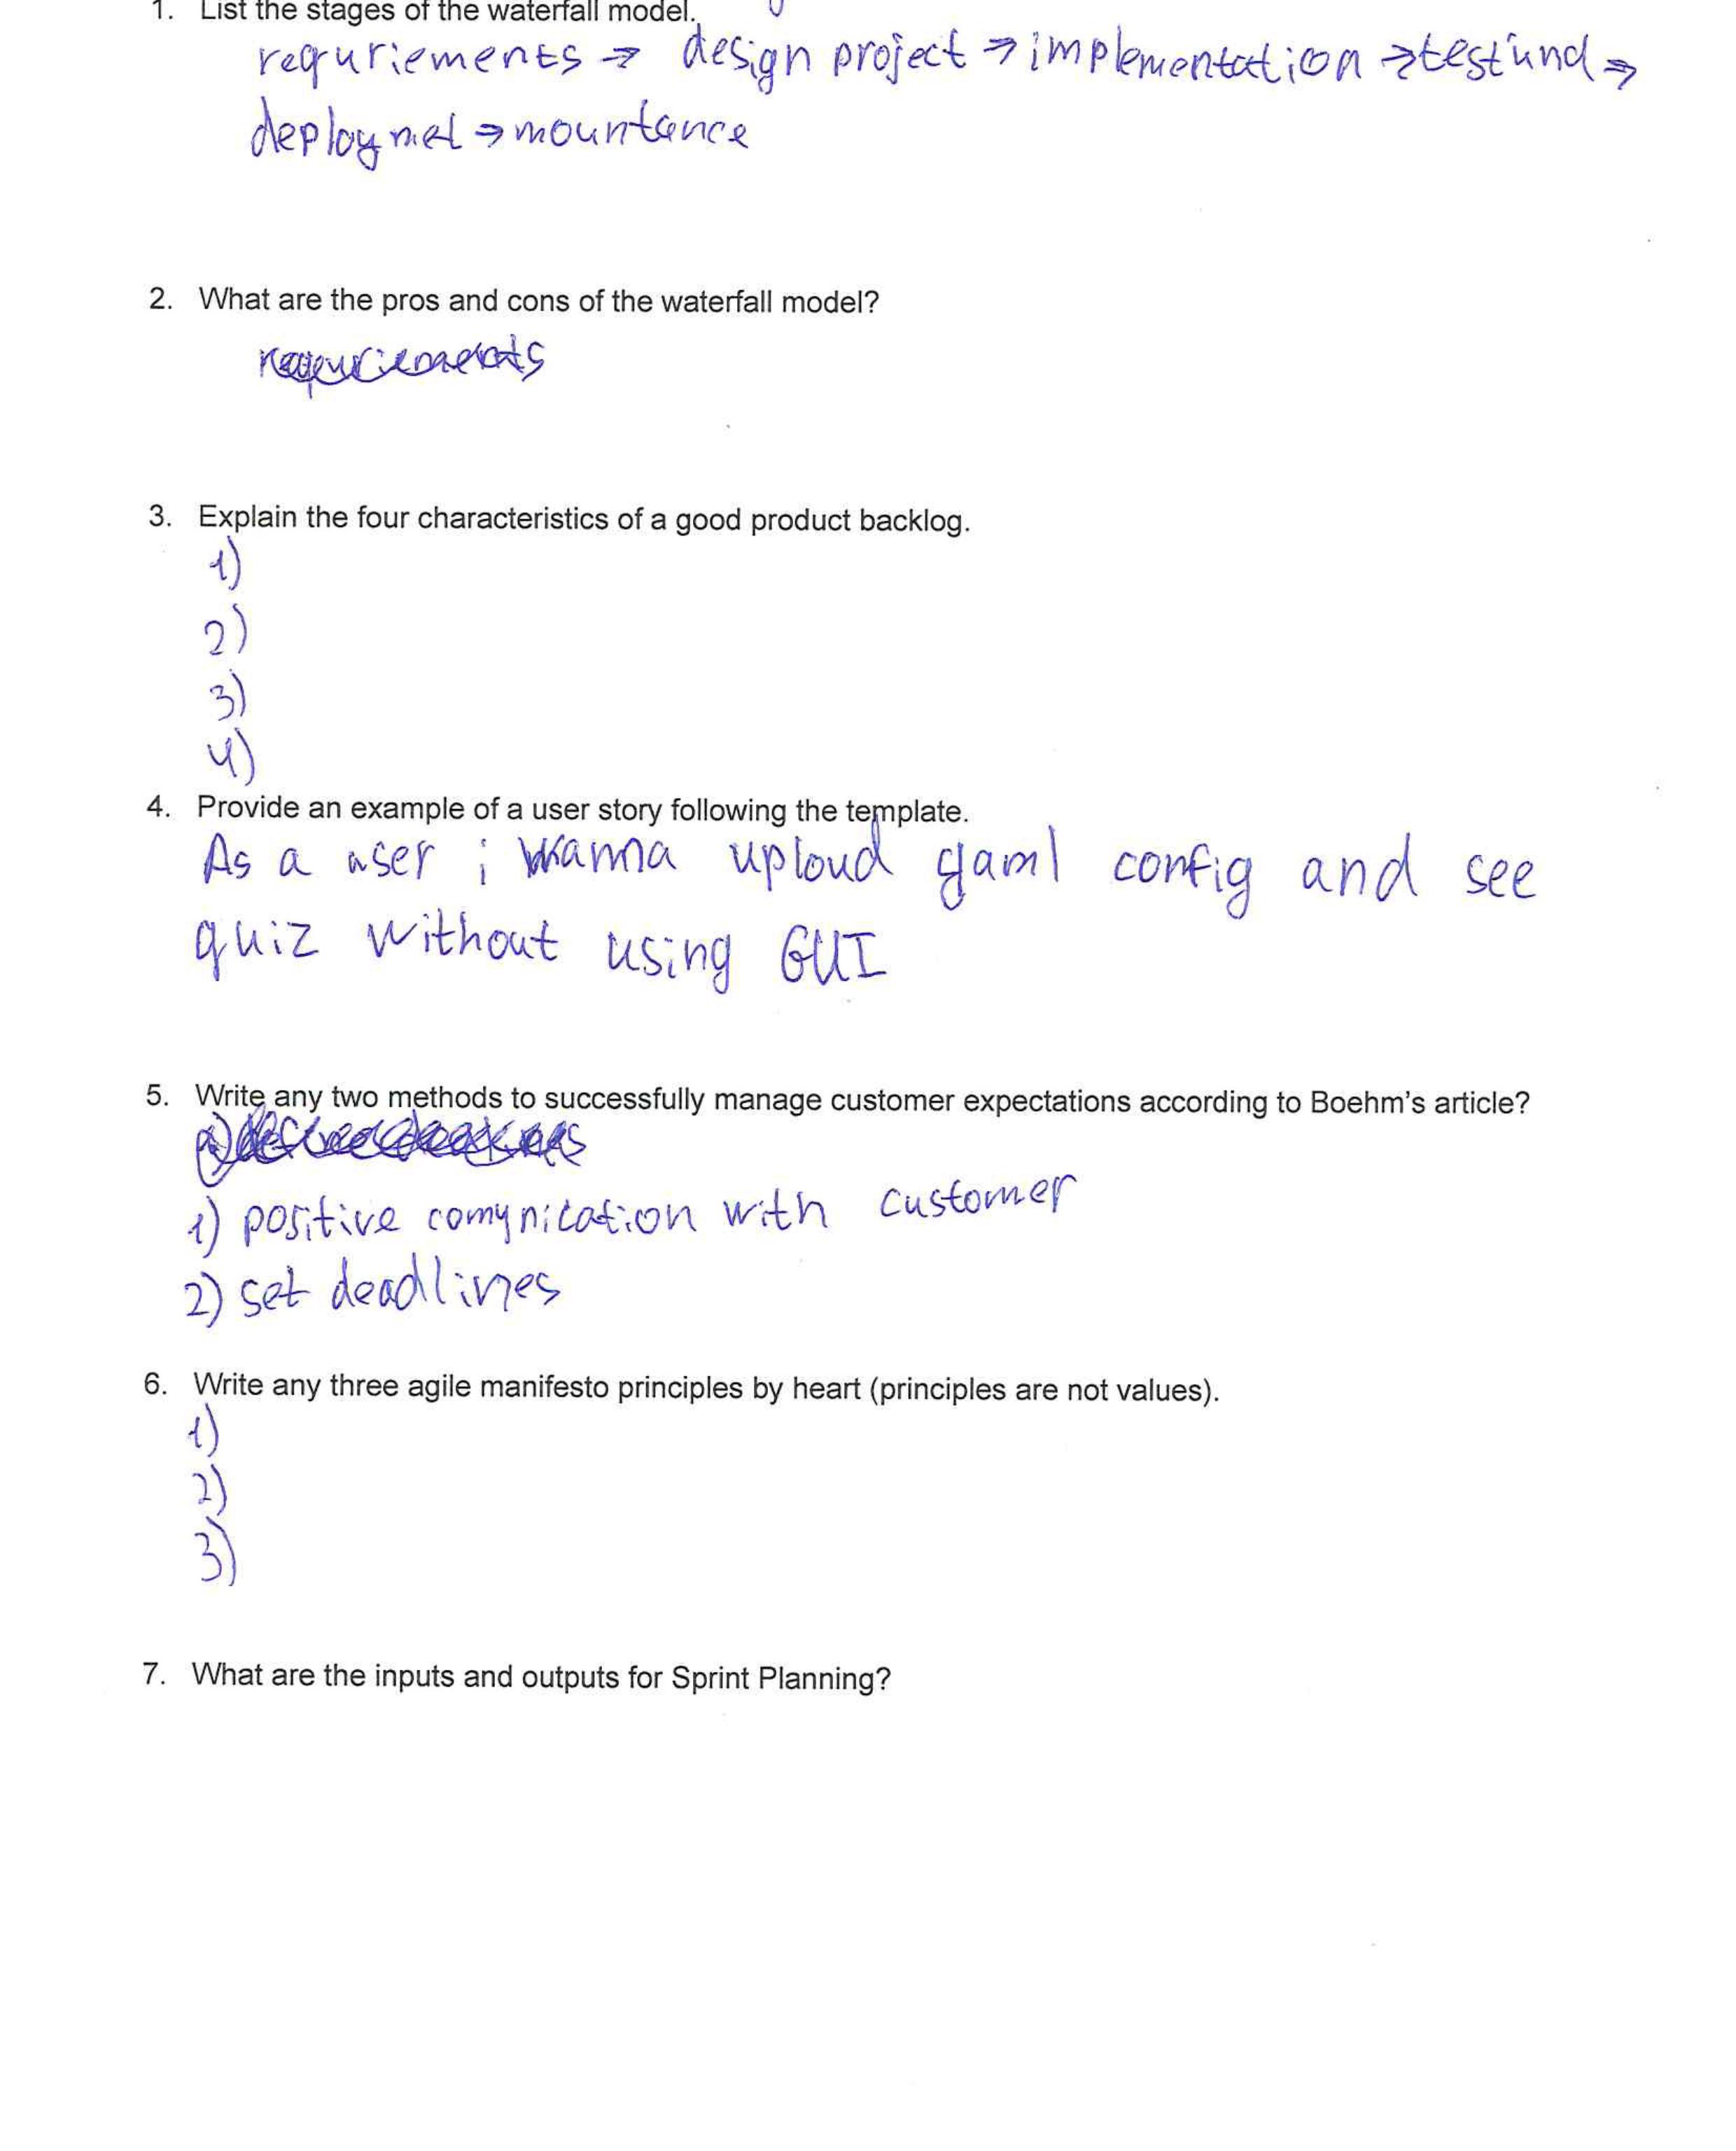 1. List the stages of the waterfall model.
requriements → design project → implementation → test'und →
deploymet → mountance
2. What are the pros and cons of the waterfall model?
requriements
3. Explain the four characteristics of a good product backlog.
1)
2)
3)
4)
4. Provide an example of a user story following the template.
As a user i wanna uploud yaml config and see
quiz without using GUI
5. Write any two methods to successfully manage customer expectations according to Boehm's article?
1) positive comynication with customer
2) set deadlines
6. Write any three agile manifesto principles by heart (principles are not values).
1)
2)
3)
7. What are the inputs and outputs for Sprint Planning?